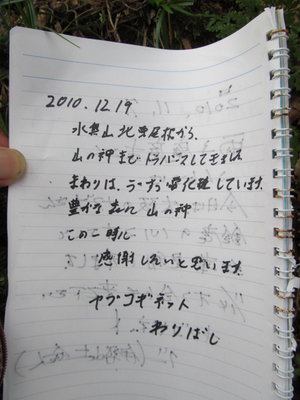 2010.12.19
水無山北 尾根から、
山の神までトラバースして
まわりは、うっすら雪化粧しています。
豊かな 山の神
この 時に
感謝したいと思います。
ヤブコギネット
わりばし